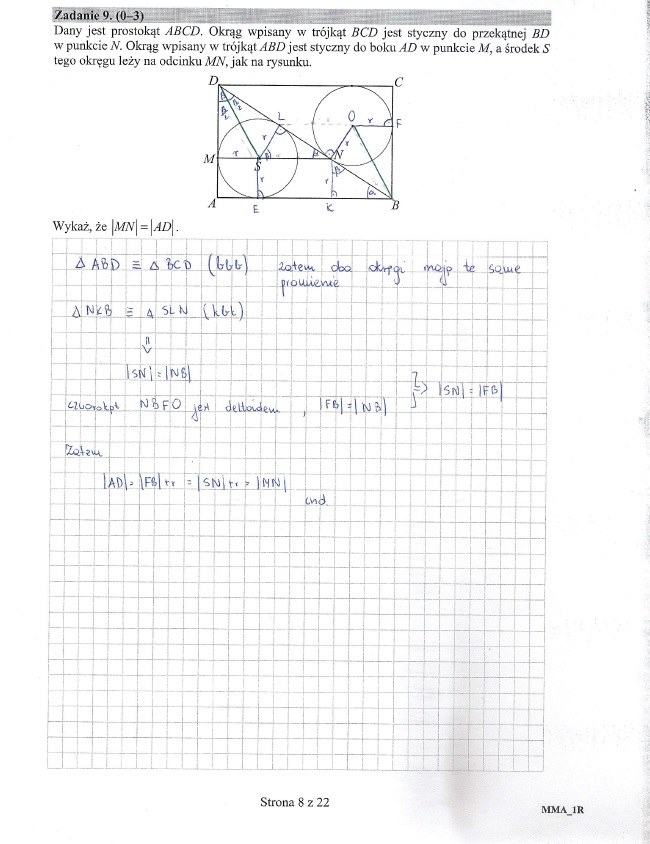 Zadanie 9. (0–3)
Dany jest prostokąt ABCD. Okrąg wpisany w trójkąt BCD jest styczny do przekątnej BD
w punkcie N. Okrąg wpisany w trójkąt ABD jest styczny do boku AD w punkcie M, a środek S
tego okręgu leży na odcinku MN, jak na rysunku.
D C
L O r F
r r
M r S β α N
r r β α
A E K B
Wykaż, że |MN| = |AD|.
△ ABD ≡ △ BCD (bbb) zatem oba okręgi mają te same
promienie
△ NKB ≡ △ SLN (kbk)
⇓
|SN| = |NB|
czworokąt NBFO jest deltoidem, |FB| = |NB| ⇒ |SN| = |FB|
Zatem
|AD| = |FB| + r = |SN| + r = |MN|
cnd.
Strona 8 z 22
MMA_1R